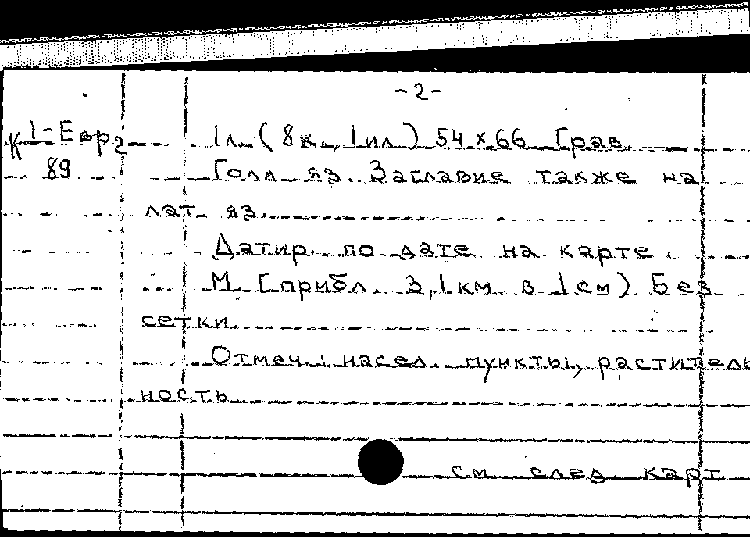 -2-
К 1-Евр.2 1л. (8к., 1 ил.) 54×66. Грав.
89 Голл. яз. Заглавие также на
лат. яз.
Датир. по дате на карте.
М. [прибл. 3,1 км в 1 см]. Без
сетки.
Отмеч.: насел. пункты, раститель
ность
см. след. карт.